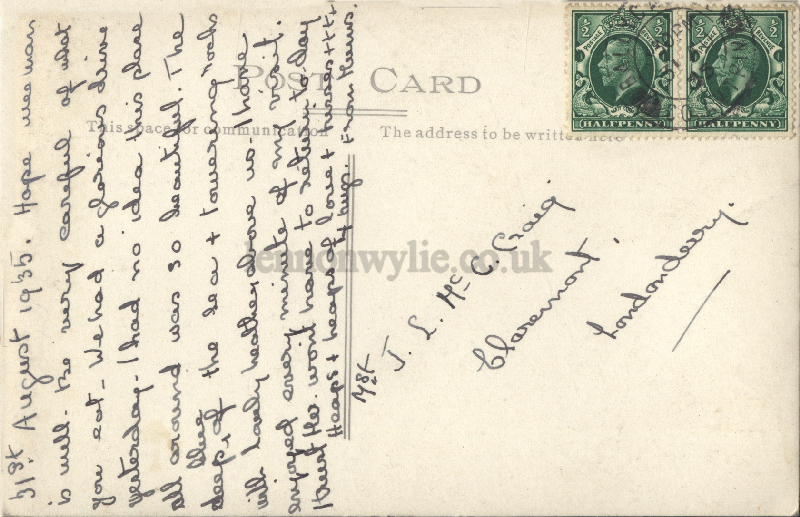 POST CARD
This space for communication
The address to be written here
31st August 1935. Hope wee man
is well. Be very careful of what
you eat. We had a glorious drive
yesterday. I had no idea this place
all around was so beautiful. The
blue
deeps of the sea & towering rocks
with lovely heather above us. I have
enjoyed every minute of my visit.
I trust He won't have to return to-day
Heaps & heaps of love & kisses &
hugs. From Mums.
J. L. McC. Craig
Claremont,
Londonderry.
½ POSTAGE REVENUE ½
HALFPENNY
½ POSTAGE REVENUE ½
HALFPENNY
lennonwylie.co.uk